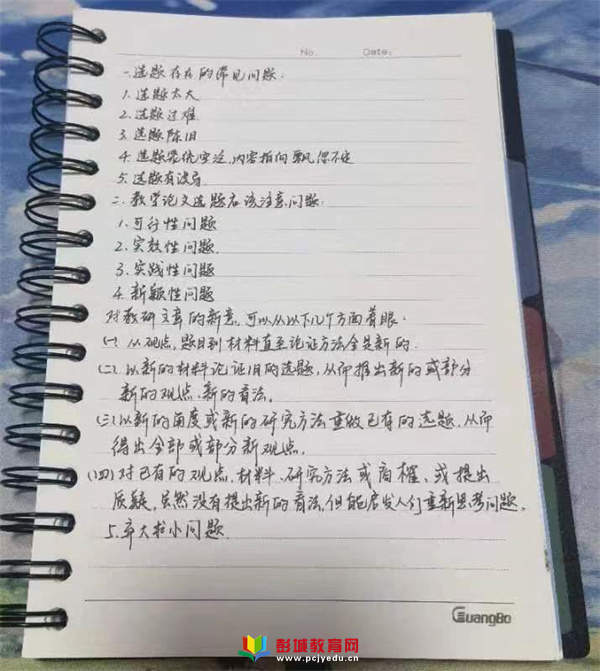 No.    Date:
一.选题存在的常见问题:
1.选题太大
2.选题过难
3.选题陈旧
4.选题笼统空泛,内容指向飘忽不定
5.选题有误
二.教学论文选题应该注意问题:
1.可行性问题
2.实效性问题
3.实践性问题
4.新颖性问题
对教研文章的新意,可以从以下几个方面着眼:
(一)从观点,题目到材料直至论证方法全是新的.
(二)以新的材料论证旧的选题,从而推出新的或部分
新的观点、新的看法。
(三)以新的角度或新的研究方法重做已有的选题,从而
得出全部或部分新观点.
(四)对已有的观点,材料、研究方法或商榷、或提出
质疑,虽然没有提出新的看法,但能启发人们重新思考问题。
5.弃大求小问题.
GuangBo
彭城教育网
www.pcjyedu.cn